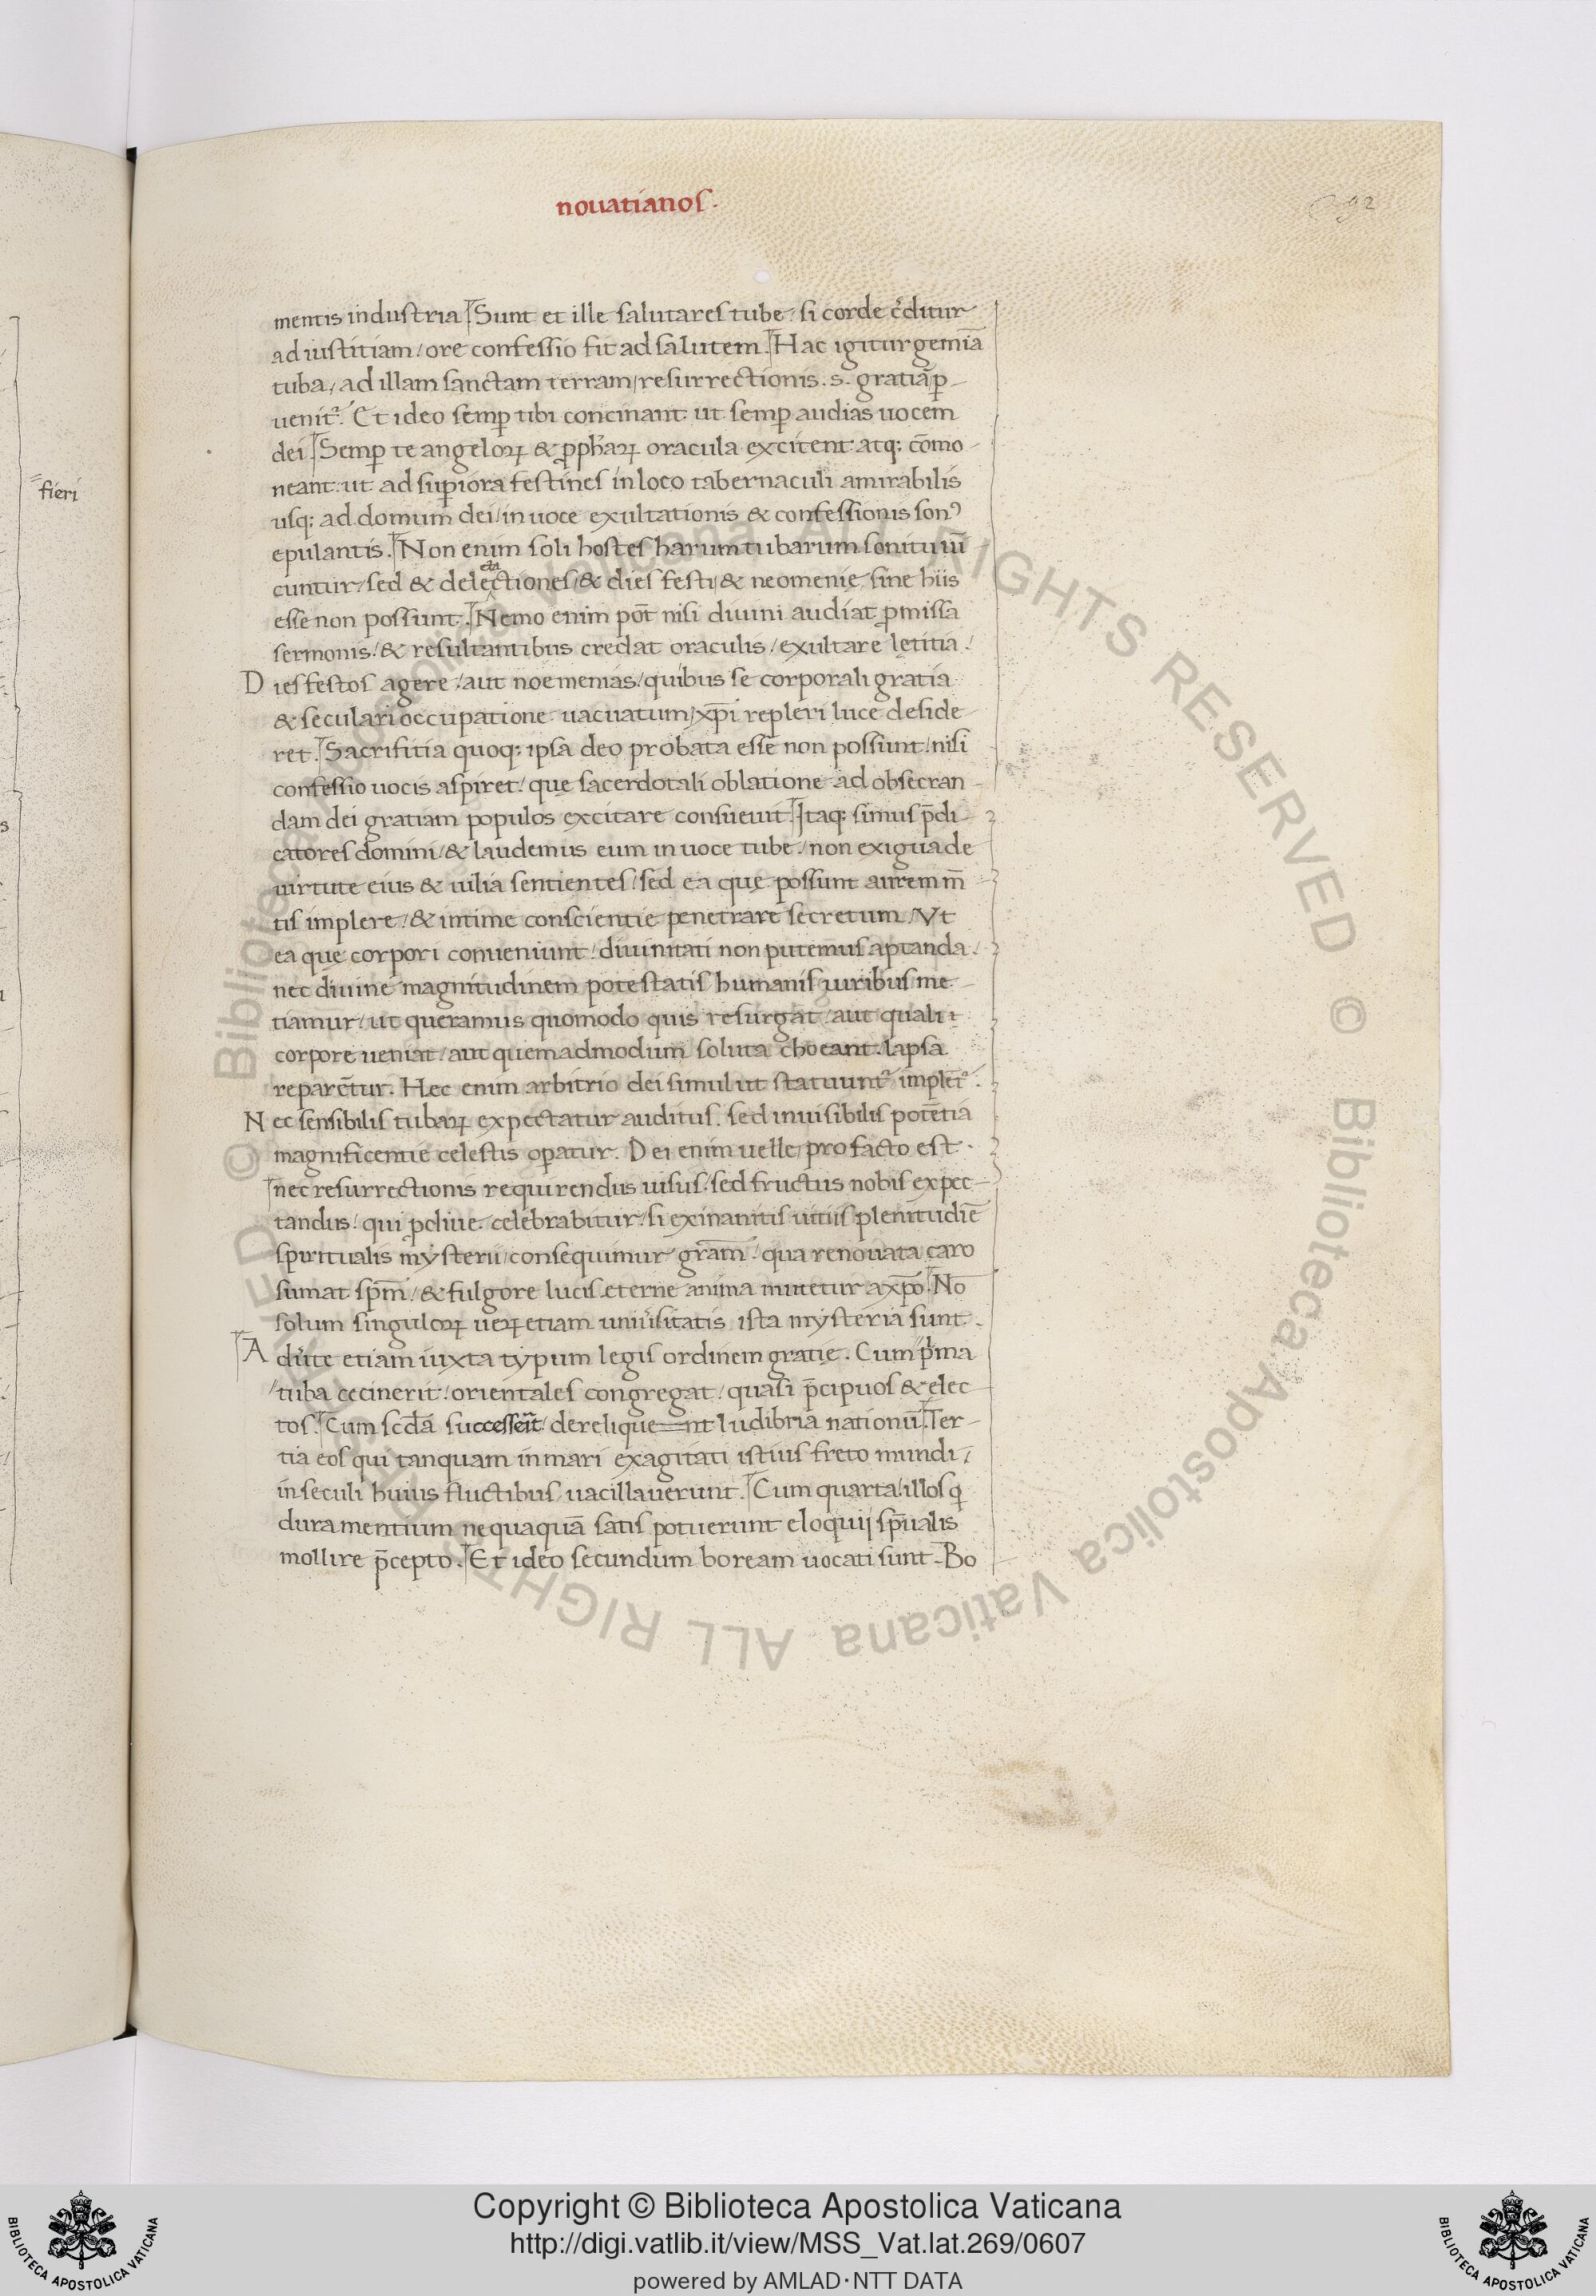 nouatianos.
92
mentis industria Sunt et ille salutares tube / si corde c̄ditur
ad iustitiam / ore confessio fit ad salutem. Hac igitur gemīa
tuba / ad illam sanctam terram / resurrectionis .s. gratiā p̄
uenit̃. Et ideo semꝑ tibi concinant ut semꝑ audias uocem
dei Semꝑ te angeloꝝ & ꝓph̄aꝝ oracula excitent atq; cōmo
neant ut ad suꝑiora festines in loco tabernaculi amirabilis
usq; ad domum dei / in uoce exultationis & confessionis sonꝰ
epulantis. Non enim soli hostes harum tubarum sonitu iū
cuntur / sed & delectiones / & dies festi / & neomenie / sine hiis
cta
esse non possunt. Nemo enim pōt nisi diuini audiat ꝓmissa
sermonis / & resultantibus credat oraculis / exultare lętitia /
Dies festos agere / aut noemenias / quibus se corporali gratia
& seculari occupatione uacuatum / xp̄i repleri luce deside
ret. Sacrifitia quoq; ipsa deo probata esse non possunt / nisi
confessio uocis aspiret / quę sacerdotali oblatione ad obsecran
dam dei gratiam populos excitare consueuit Itaq; simus p̄di
catores domini / & laudemus eum in uoce tube / non exigua de
uirtute eius & uilia sentientes / sed ea quę possunt aurem m̄
tis implere / & intime conscientie penetrare secretum / Vt
ea quę corpori conueniunt / diuinitati non putemus aptanda /
nec diuine magnitudinem potestatis humanis uiribus me
tiamur / ut queramus quomodo quis resurgat / aut quali
corpore ueniat / aut quemadmodum soluta choeant / lapsa
reparētur. Hec enim arbitrio dei simul ut statuunt̃ implēt̃.
Nec sensibilis tubaꝝ expectatur auditus. sed inuisibilis potētia
magnificentie celestis oꝑatur. Dei enim uelle / pro facto est.
nec resurrectionis requirendus uisus. sed fructus nobis expec
tandus / qui ꝓcliue celebrabitur / si exinanitis uitiis plenitudiē
spiritualis mysterii / consequimur gr̄am / qua renouata caro
sumat sp̄m / & fulgore lucis eterne anima mutetur a xp̄o. Nō
solum singuloꝝ ueꝝ etiam uniu̇sitatis ista mysteria sunt.
Adu̇te etiam iuxta typum legis ordinem gratię. Cum p̄ma
tuba cecinerit / orientales congregat / quasi p̄cipuos & elec
tos. Cum sc̄da successerit / derelique=nt ludibria nationū. Ter
tia eos qui tanquam in mari exagitati istius freto mundi /
in seculi huius fluctibus uacillauerunt. Cum quarta / illos q̇
dura mentium nequaquā satis potuerunt eloquij sp̄ualis
mollire p̄cepto. Et ideo secundum boream uocati sunt. Bo
fieri
Copyright © Biblioteca Apostolica Vaticana
http://digi.vatlib.it/view/MSS_Vat.lat.269/0607
powered by AMLAD·NTT DATA
BIBLIOTECA APOSTOLICA VATICANA
BIBLIOTECA APOSTOLICA VATICANA
© Biblioteca Apostolica Vaticana ALL RIGHTS RESERVED © Biblioteca Apostolica Vaticana ALL RIGHTS RESERVED